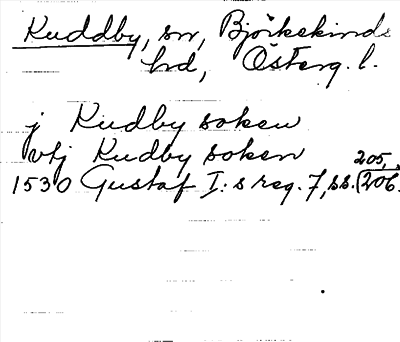 Kuddby, sn, Björkekinds
hd, Österg. l.
j Kudby soken
vtj Kudby soken
1530 Gustaf I:s reg. 7, ss. 205, 206.